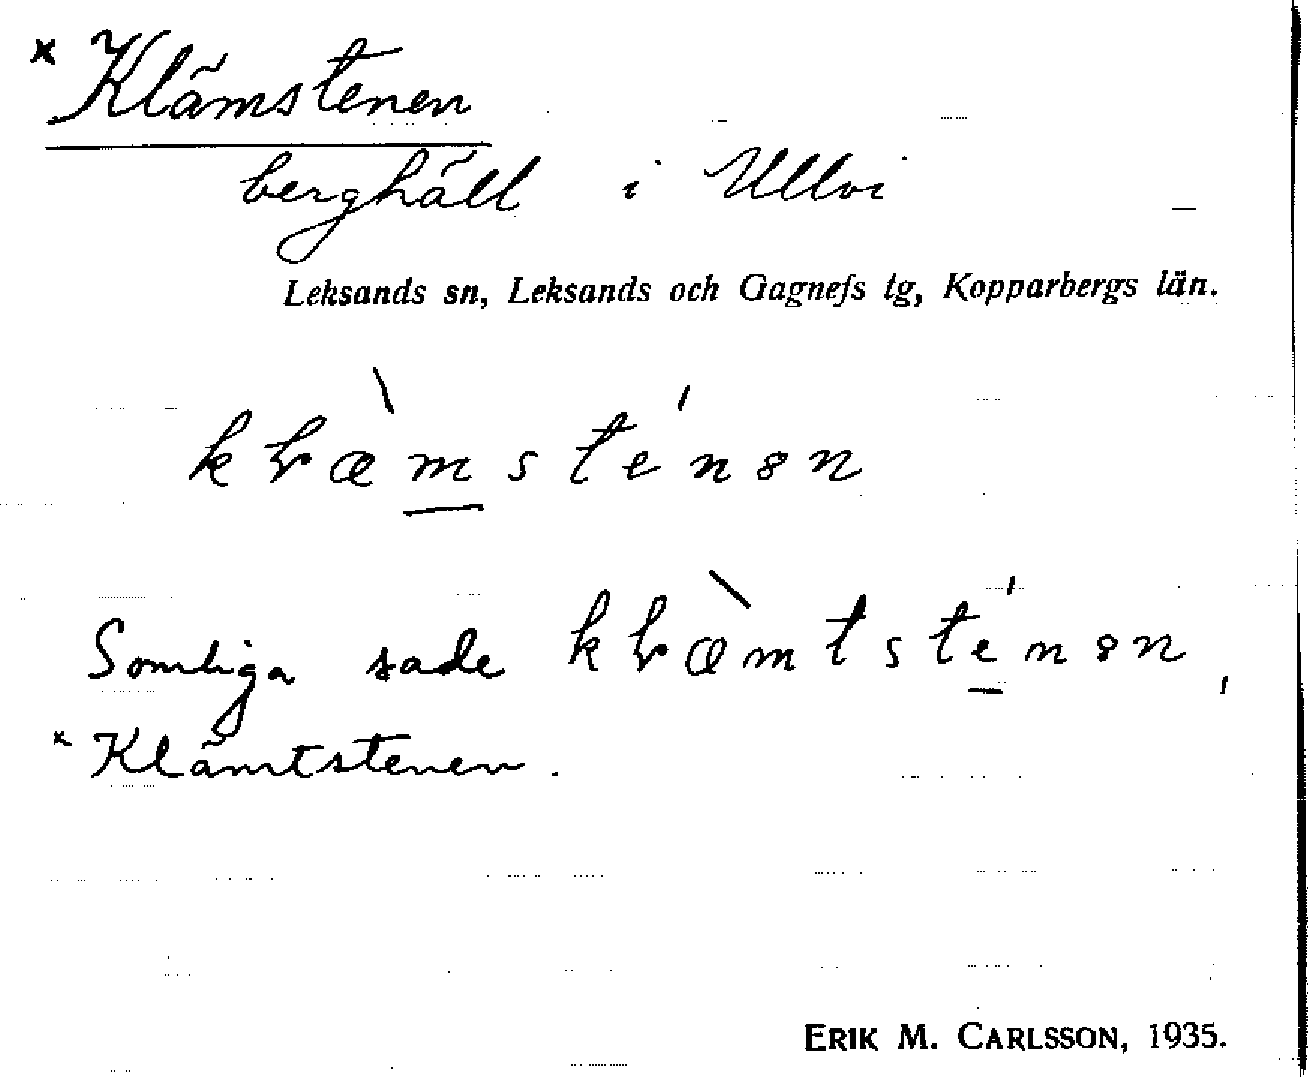 x Klämstenen
berghäll i Ullvi
Leksands sn, Leksands och Gagnefs tg, Kopparbergs län.
Somliga sade
x Klämtstenen.
ERIK M. CARLSSON, 1935.